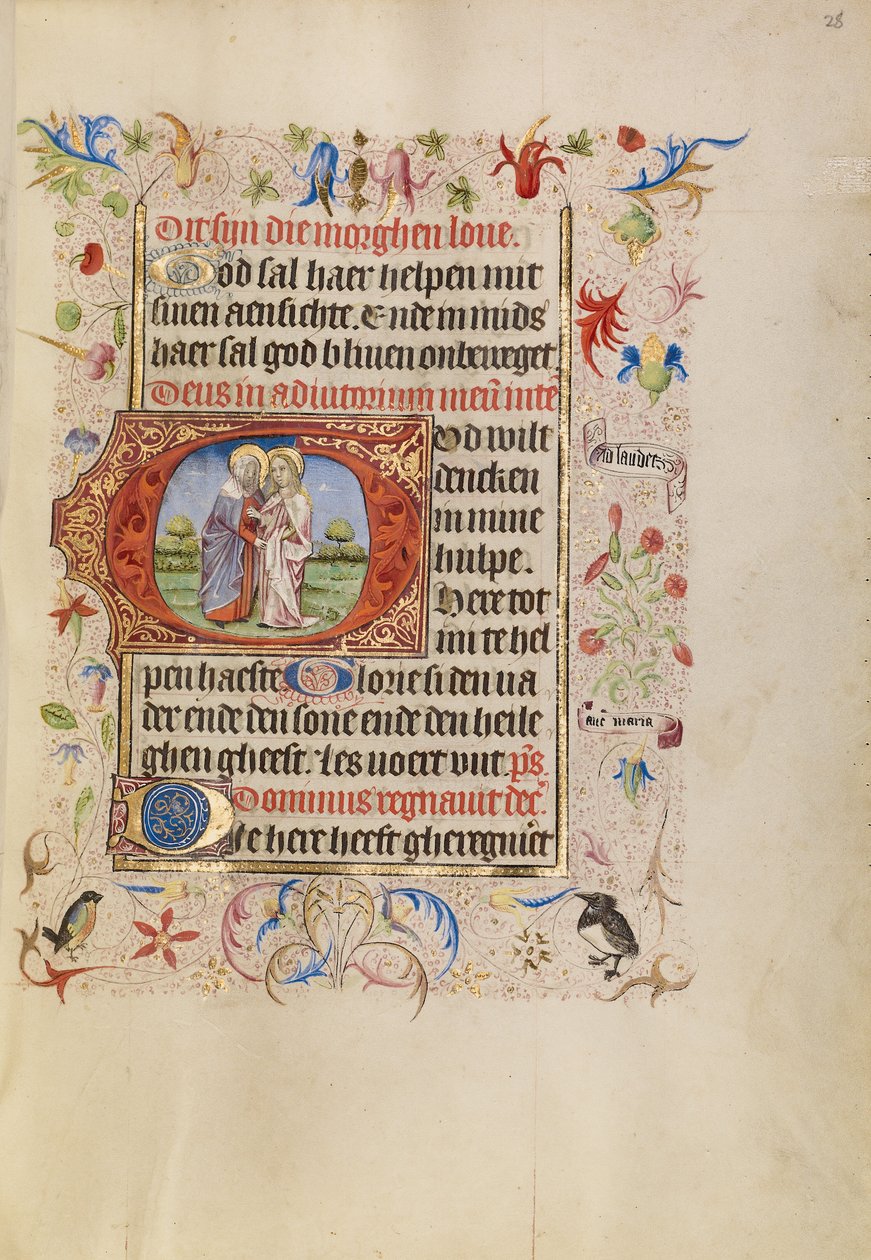 28
Dit sijn die morghen loue.
God sal haer helpen mit
sinen aensichte. Ende in mids
haer sal god bliuen onbeweget.
Deus in adiutorium meū intē
God wilt
dencken
in mine
hulpe.
Here tot
mi te hel
pen haeste Glorie si den va
der ende den sone ende den heile
ghen gheest. Als voert vut. ps.
Dominus regnauit dec̄.
Die here heeft gheregniert
ad laudes
aue maria